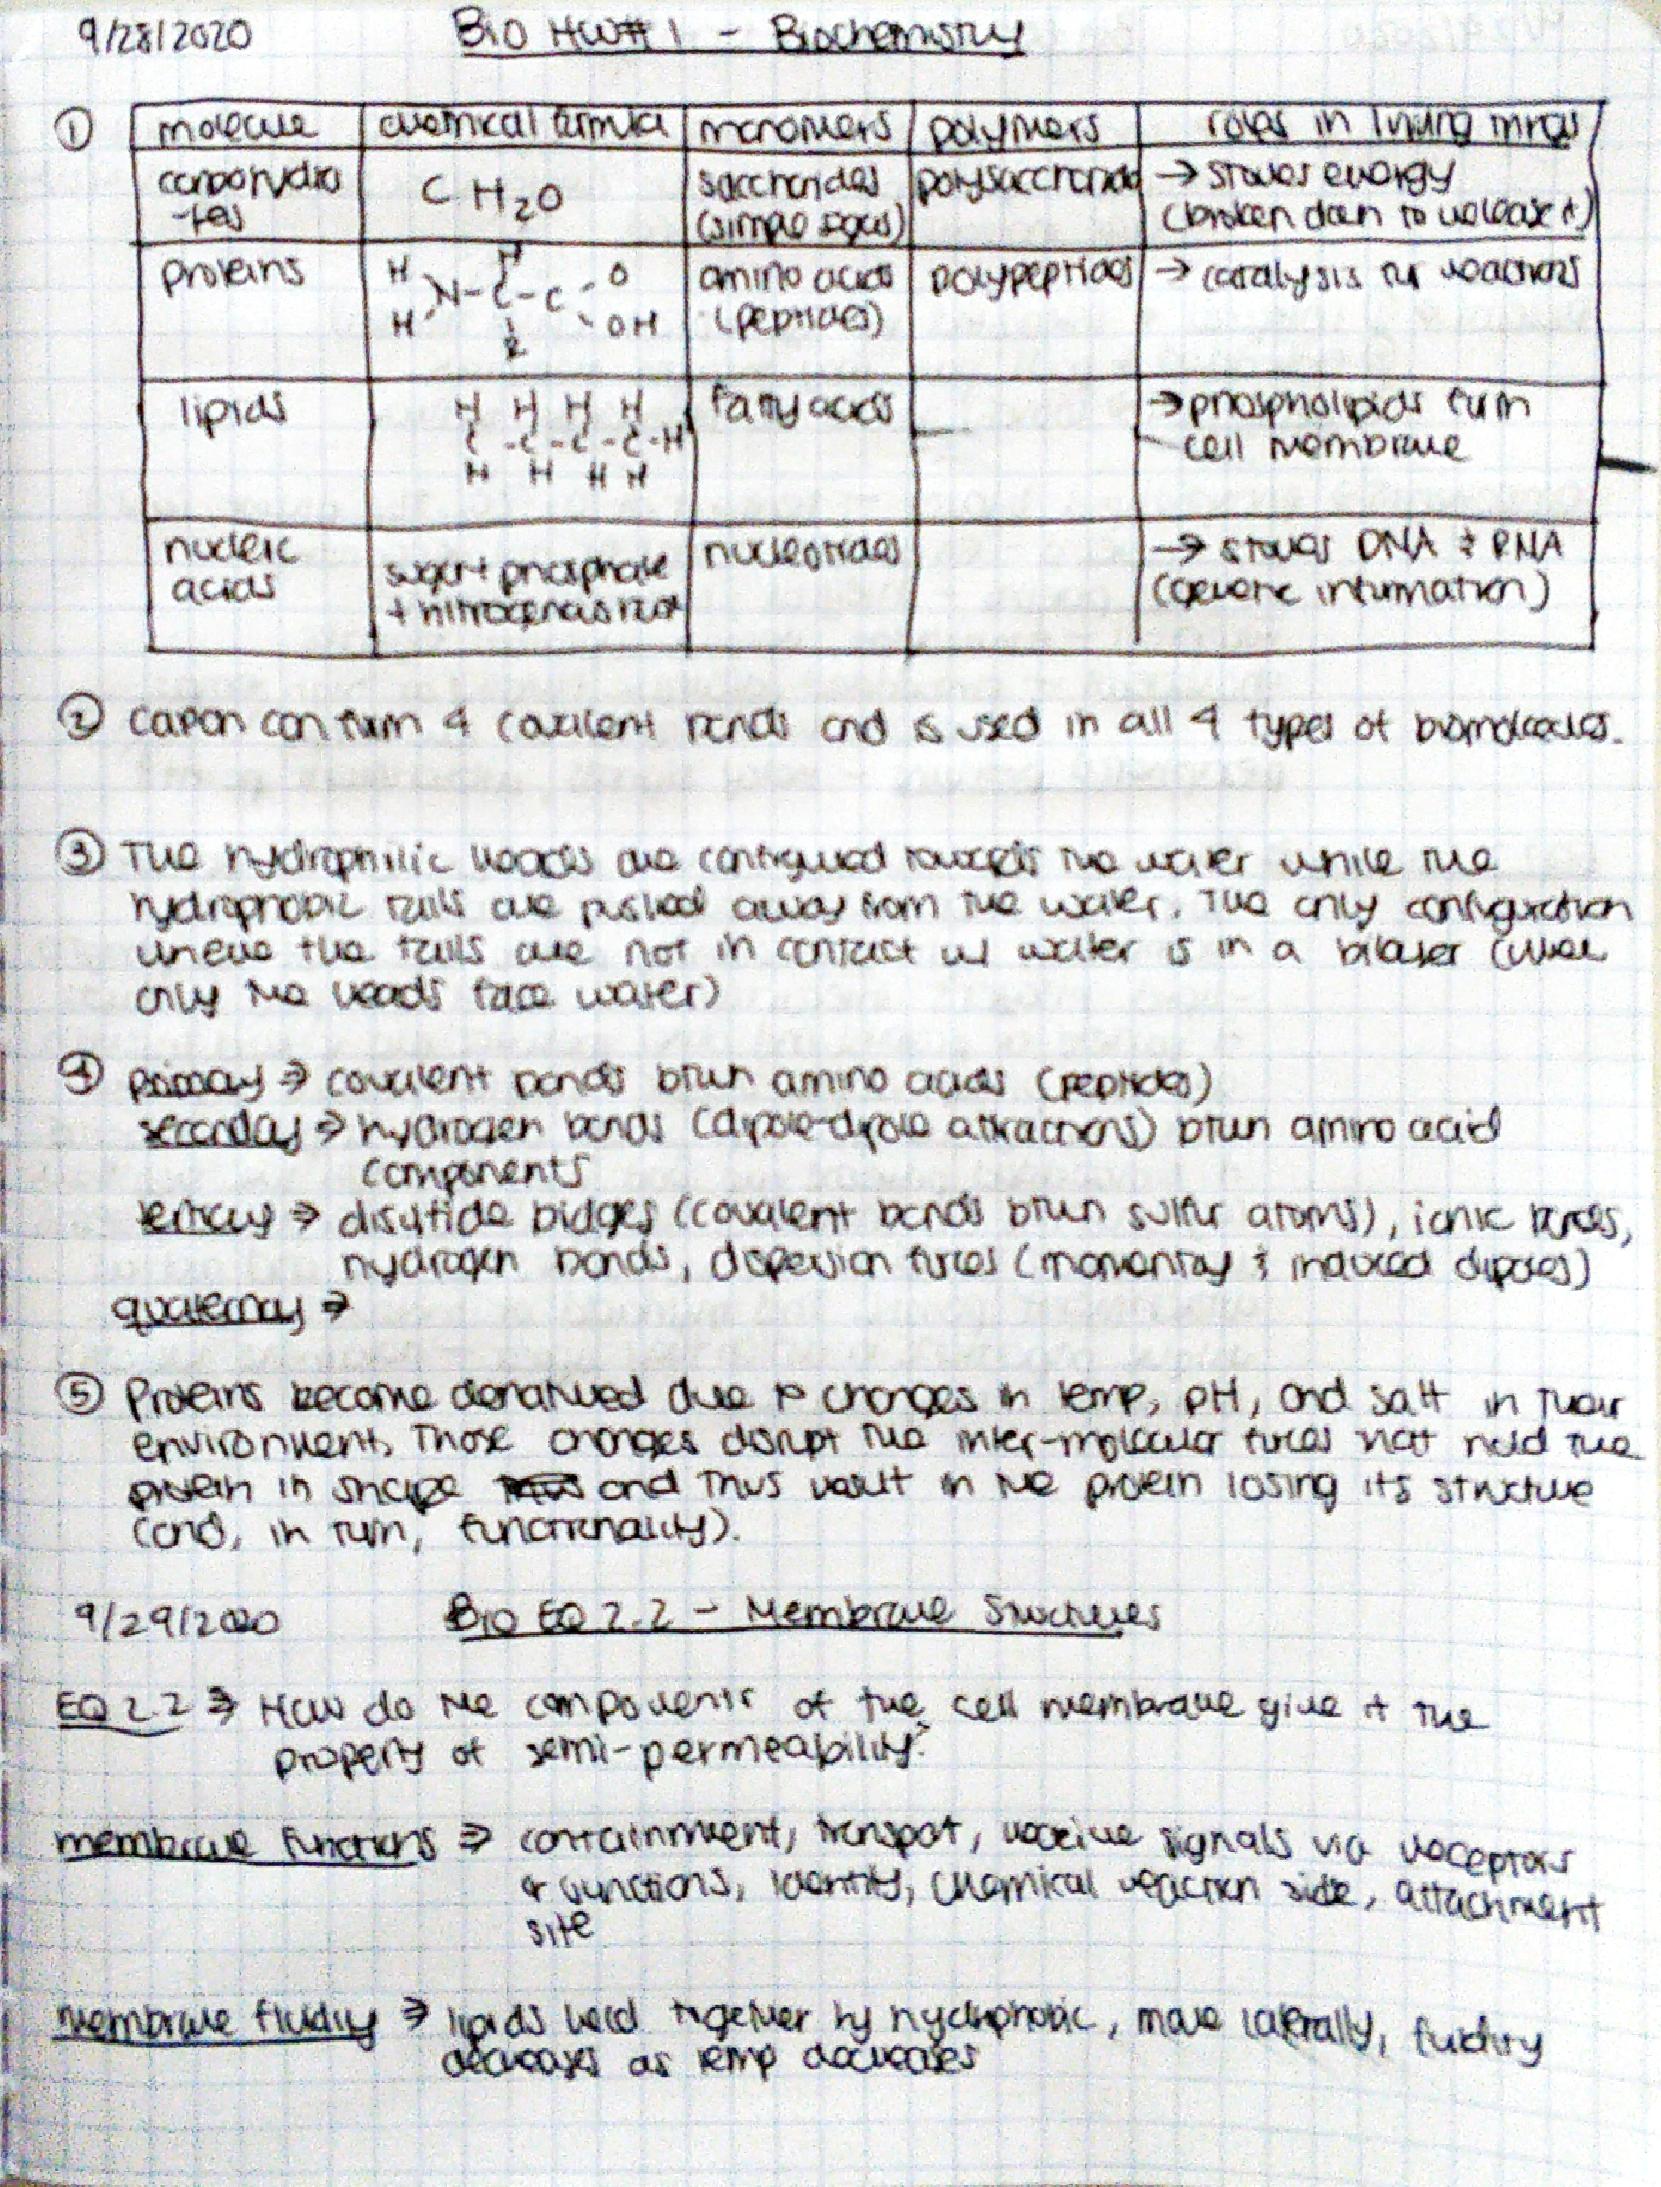 9/28/2020 Bio HW#1 - Biochemistry
① molecule chemical formula monomers polymers roles in living things
carbohydra-tes CH₂O saccharides (simple sugars) polysaccharide → stores energy (broken down to release it)
proteins H H N-C-C H R O OH amino acids (peptides) polypeptides → catalysis for reactions
lipids H H H H C-C-C-C-H H H H H fatty acids — → phospholipids form cell membrane
nucleic acids sugar + phosphate + nitrogenous nucleotides → stores DNA & RNA (genetic information)
② Carbon can form 4 covalent bonds and is used in all 4 types of biomolecules.
③ The hydrophilic heads are configured towards the water while the
hydrophobic tails are pushed away from the water. The only configuration
where the tails are not in contact w/ water is in a bilayer (where
only the heads face water)
④ primary ⇒ covalent bonds btwn amino acids (peptides)
secondary ⇒ hydrogen bonds (dipole-dipole attractions) btwn amino acid
components
tertiary ⇒ disulfide bidges (covalent bonds btwn sulfur atoms), ionic bonds,
hydrogen bonds, dispersion forces (momentary & induced dipoles)
quaternary ⇒
⑤ Proteins become denatured due to changes in temp, pH, and salt in their
environment. Those changes disrupt the inter-molecular forces that hold the
protein in shape and thus result in the protein losing its structure
(and, in turn, functionality).
9/29/2020 Bio EQ 2.2 - Membrane Structures
EQ 2.2 ⇒ How do the components of the cell membrane give it the
property of semi-permeability?
membrane functions ⇒ containment, transport, receive signals via receptors
& junctions, identity, chemical reaction side, attachment
site
membrane fluidity ⇒ lipids held together by hydrophobic, move laterally, fluidity
decreases as temp decreases